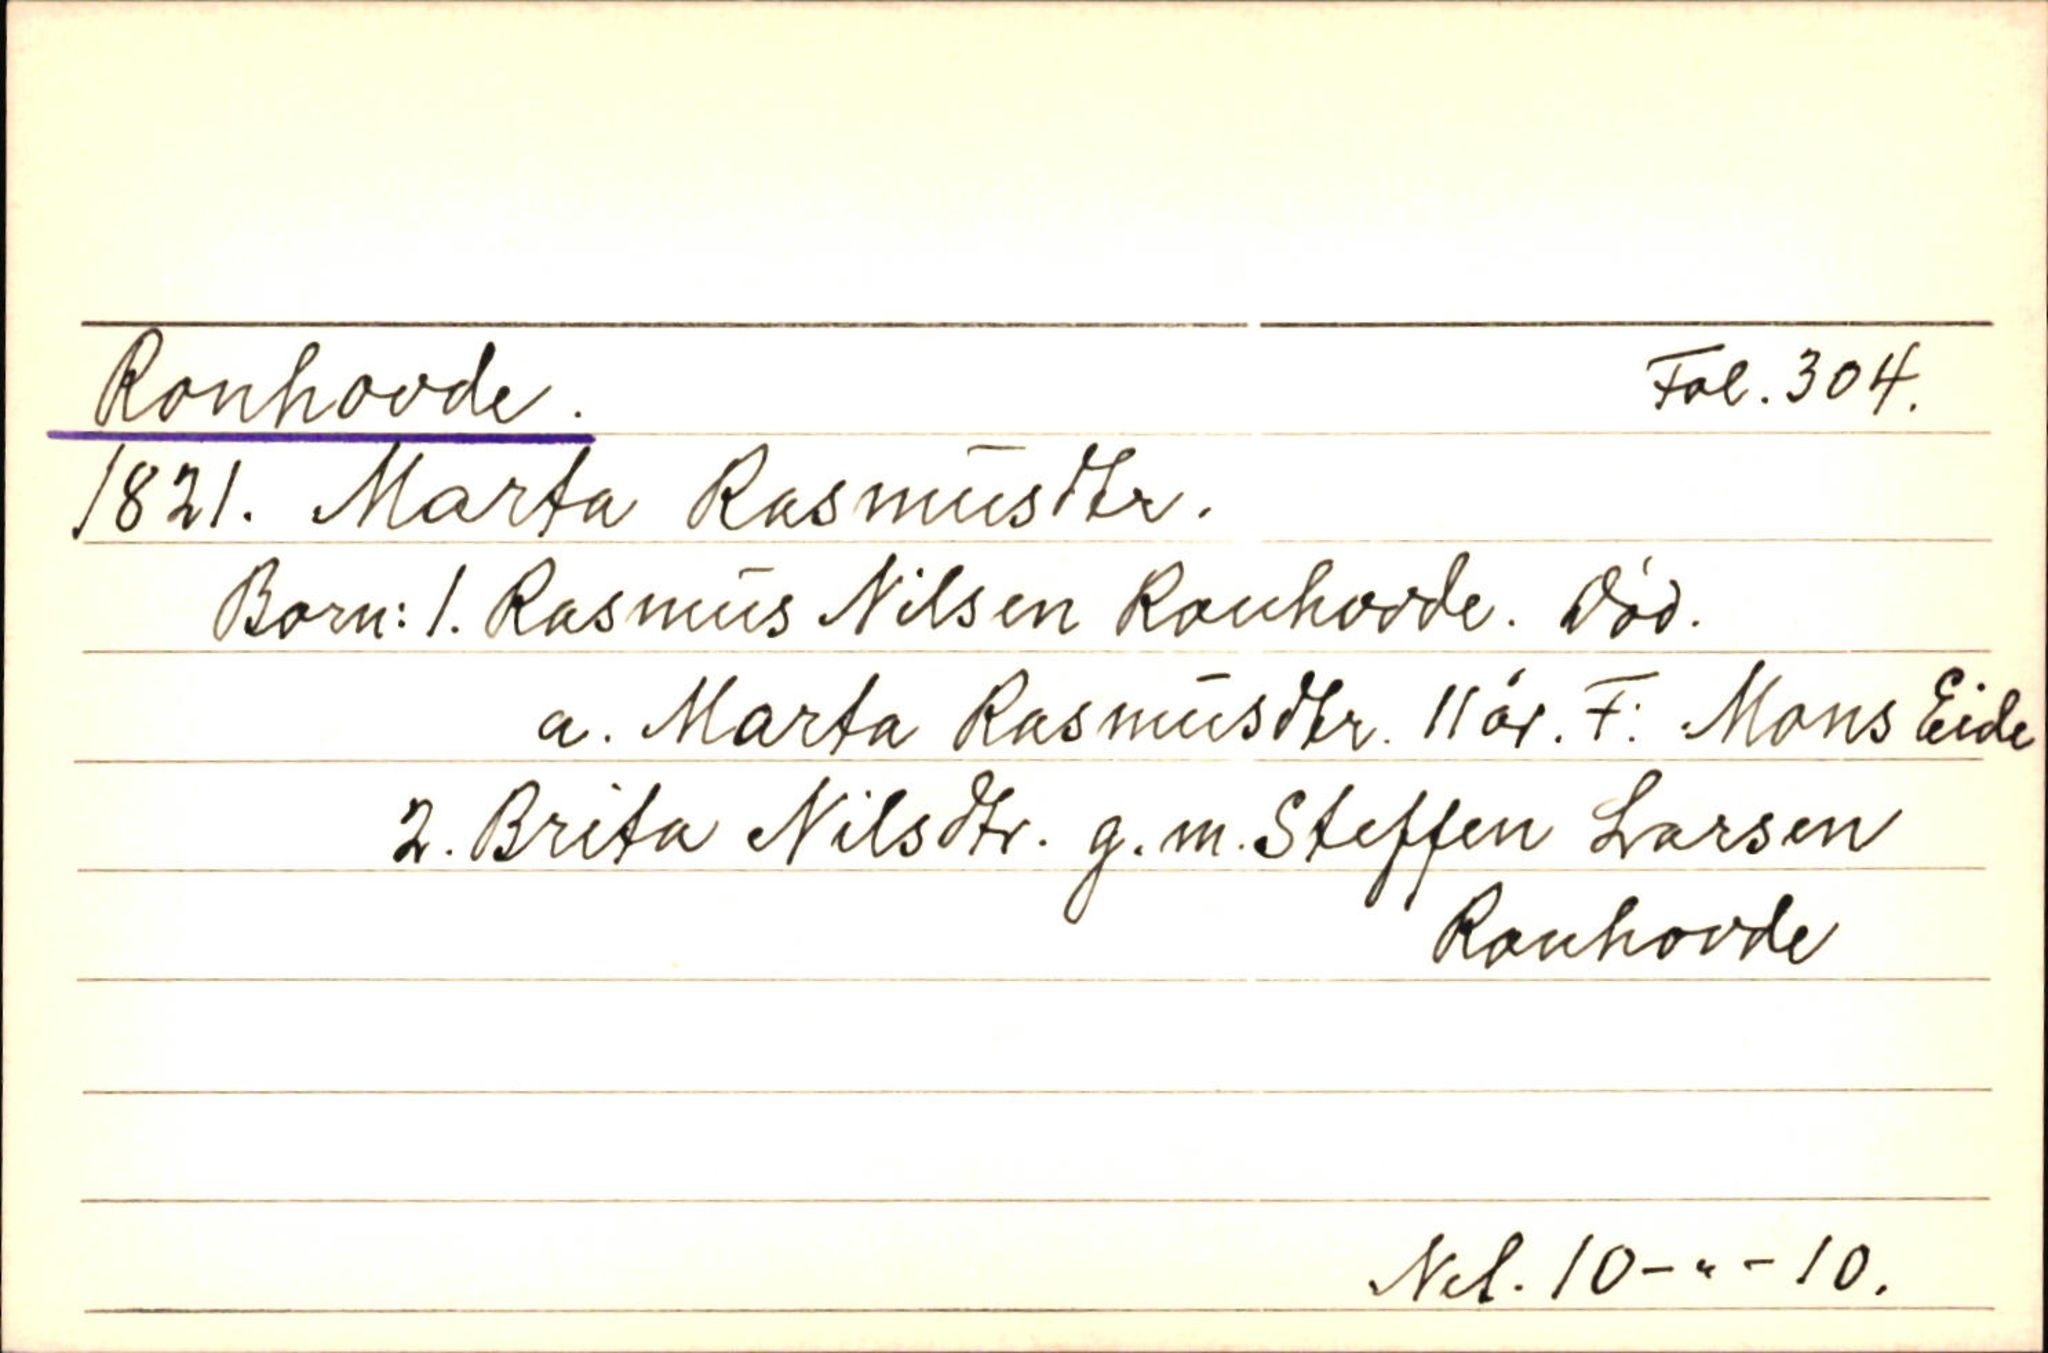 Ronhovde. Fol. 304.
1821. Marta Rasmusdtr.
Born: 1. Rasmus Nilsen Ronhovde. Død.
a. Marta Rasmusdtr. 11 år. F: Mons Eide
2. Brita Nilsdtr. g. m. Steffen Larsen
Ronhovde
Nel. 10-"-10.